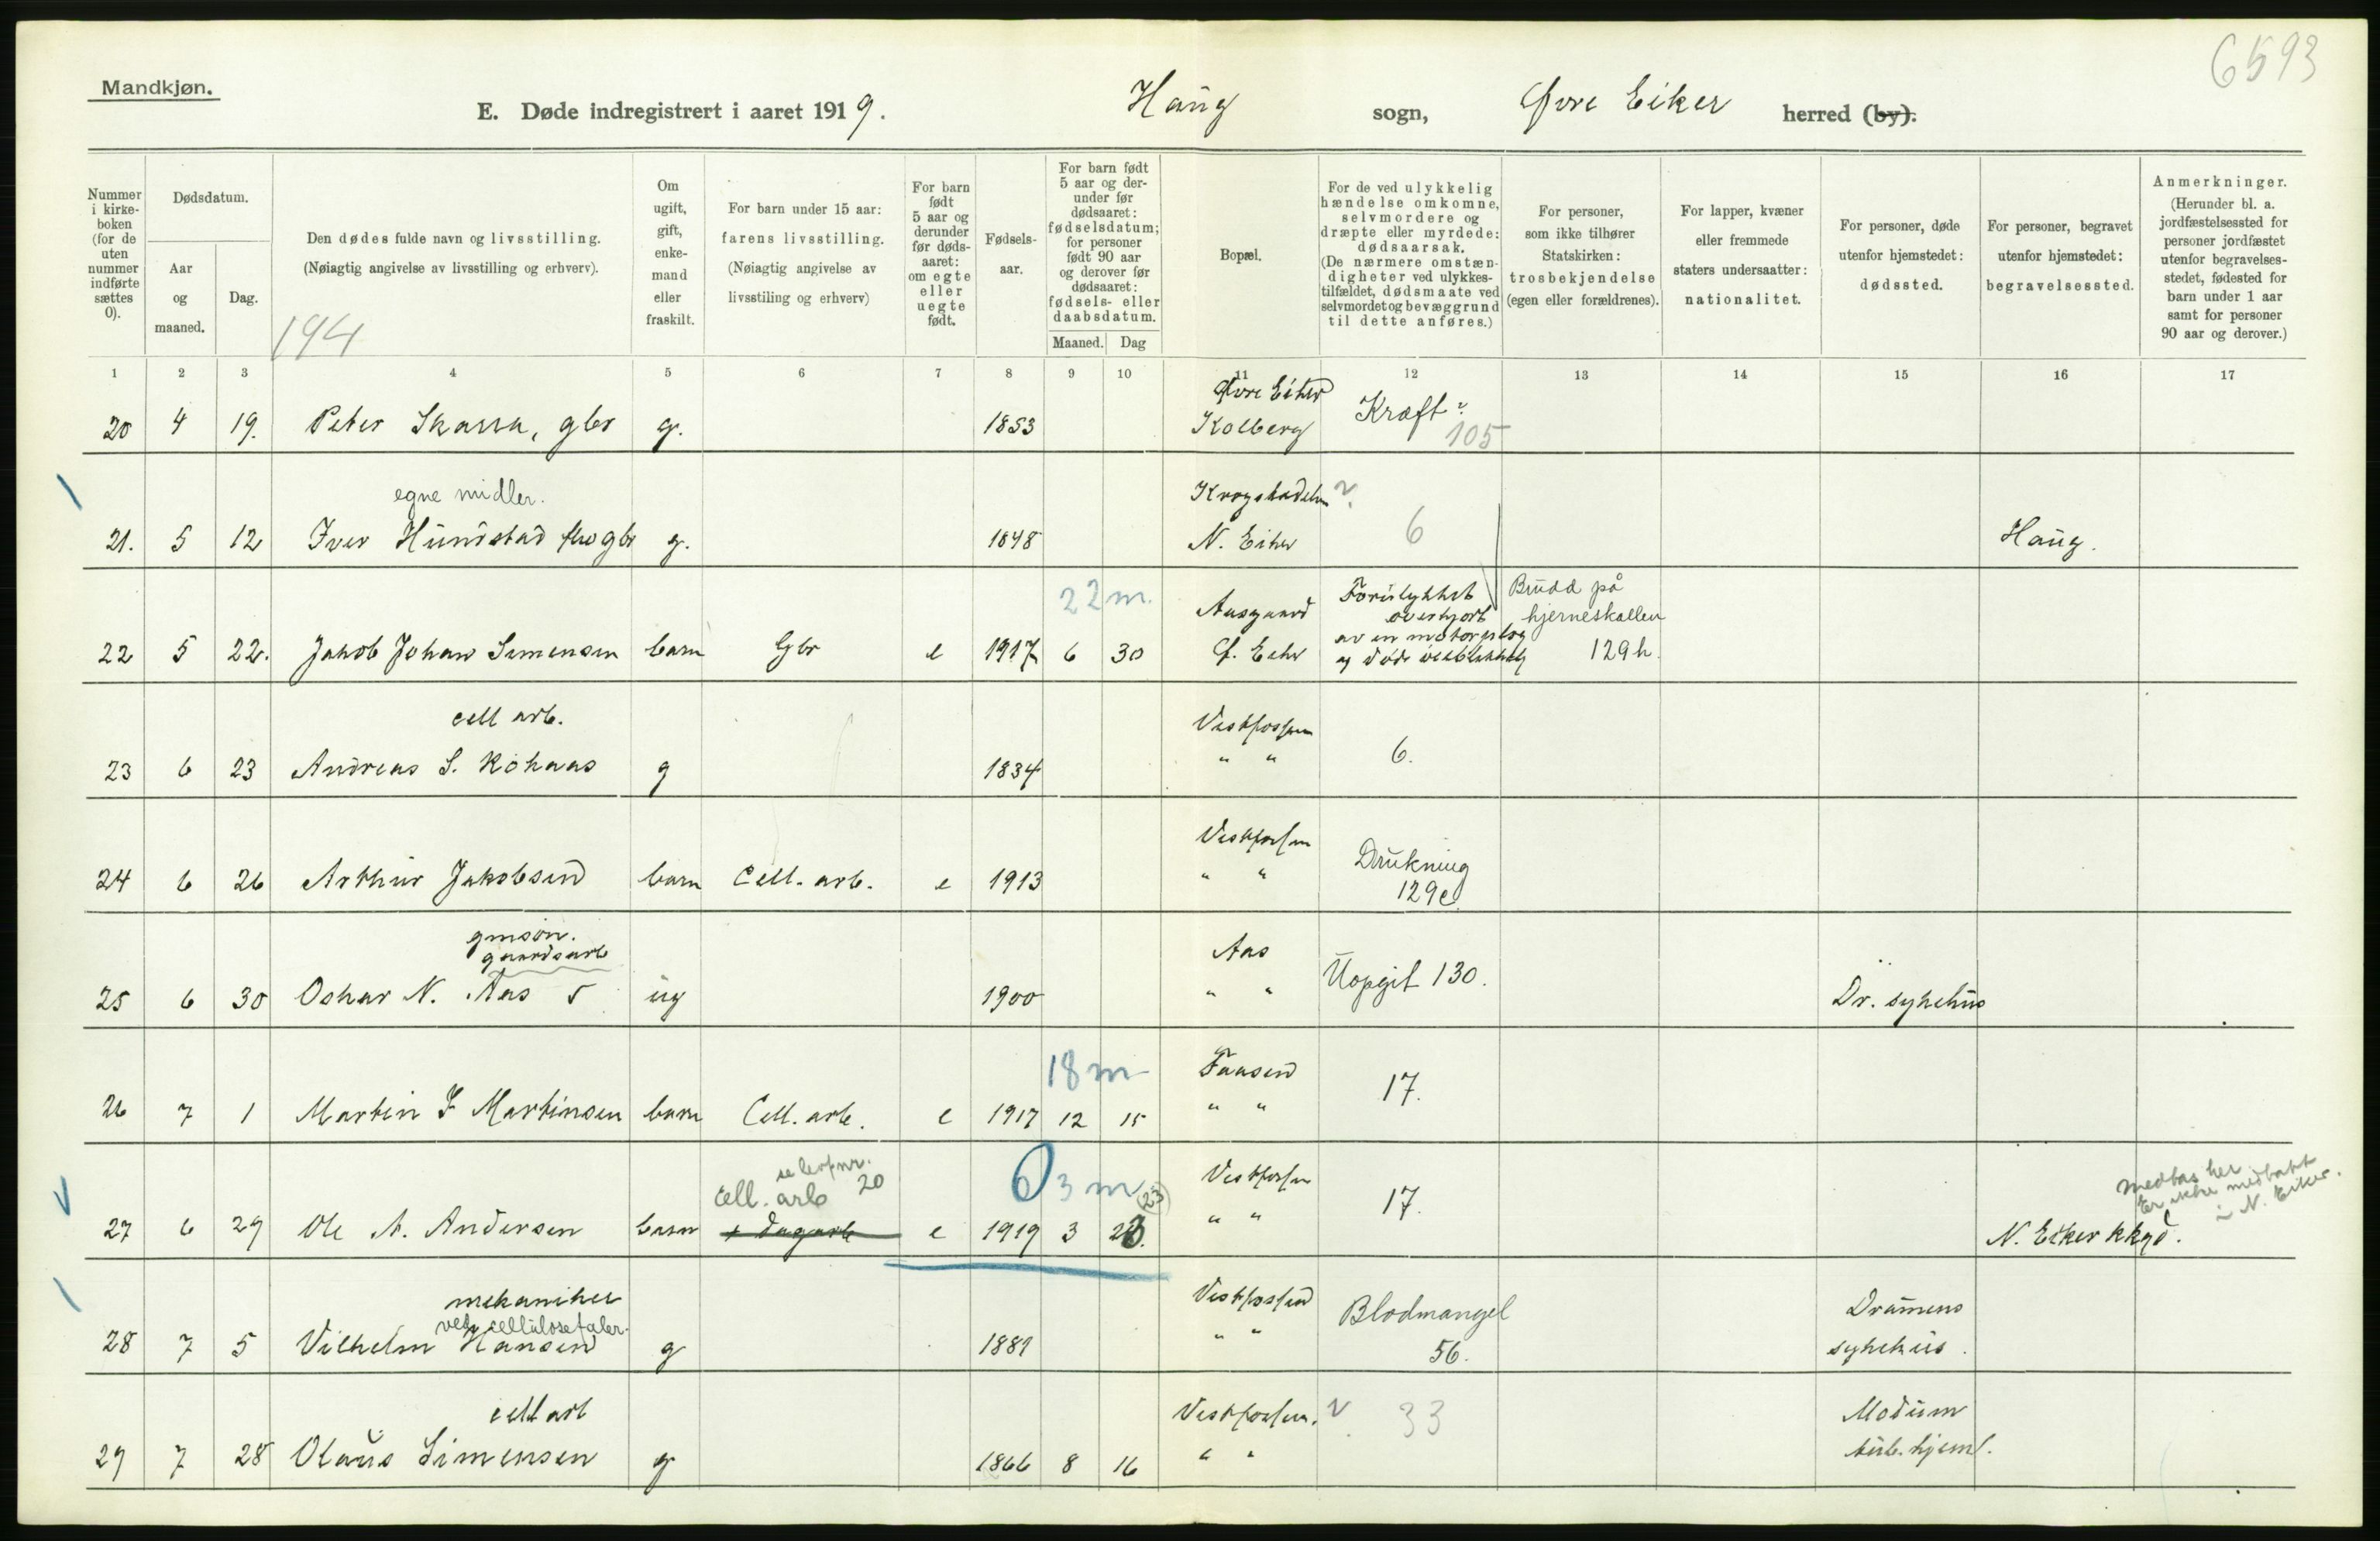 6593
Mandkjøn.
E. Døde indregistrert i aaret 1919. Haug sogn, Øvre Eiker herred (by).
Nummer i kirkeboken (for de uten nummer indførte sættes 0).
Dødsdatum.
Aar og maaned.
Dag.
Den dødes fulde navn og livsstilling.
(Nøiagtig angivelse av livsstilling og erhverv).
194
Om ugift, gift, enkemand eller fraskilt.
For barn under 15 aar: farens livsstilling.
(Nøiagtig angivelse av livsstiling og erhverv)
For barn født 5 aar og derunder før dødsaaret: om egte eller uegte født.
Fødselsaar.
For barn født 5 aar og derunder før dødsaaret: fødselsdatum; for personer født 90 aar og derover før dødsaaret: fødsels- eller daabsdatum.
Maaned. Dag
Bopæl.
For de ved ulykkelig hændelse omkomne, selvmordere og dræpte eller myrdede: dødsaarsak.
(De nærmere omstændigheter ved ulykkestilfældet, dødsmaate ved selvmordet og bevæggrund til dette anføres.)
For personer, som ikke tilhører Statskirken: trosbekjendelse (egen eller forældrenes).
For lapper, kvæner eller fremmede staters undersaatter: nationalitet.
For personer, døde utenfor hjemstedet: dødssted.
For personer, begravet utenfor hjemstedet: begravelsessted.
Anmerkninger.
(Herunder bl. a. jordfæstelsessted for personer jordfæstet utenfor begravelsesstedet, fødested for barn under 1 aar samt for personer 90 aar og derover.)
1 2 3 4 5 6 7 8 9 10 11 12 13 14 15 16 17
Øvre Eiker
20 4 19. Peter Skarra, gbr g. 1853 Kolberg Kræft 105
egne midler. Krogstadelven
21. 5 12 Iver Hundstad gbr g. 1848 N. Eiker 6 Haug.
22 m. Aasgaard Forulykket overkjørt Brudd på hjerneskallen
22 5 22. Jakob Johan Simensen barn Gbr e 1917 6 30 Ø. Eiker av en motorplog og døde 129h.
cell arb. Vestfossen
23 6 23 Andreas S. Kohaas g 1834 " " 6.
Vestfossen
24 6 26 Arthur Jakobsen barn Cell. arb. e 1913 " " Drukning 129e
gmsøn. gaardsarb Aas
25 6 30 Oskar N. Aas s ug 1900 " " Uopgit 130. Dr. sykehus
18 m Faasen
26 7 1 Martin F Martinsen barn Cell. arb. e 1917 12 15 " " 17.
se lev.fnr. 20 cell. arb 0 3 m (23) Vestfossen medtas her Er ikke medtatt i N. Eiker.
27 6 29 Ole A. Andersen barn dagarb e 1919 3 23. " " 17. N. Eiker kkgd.
mekaniker ved cellulosefabr. Vestfossen Drammens
28 7 5 Vilhelm Hansen g 1881 " " Blodmangel 56. sykehus.
cell arb Vestfossen. Modum
29 7 28 Olaus Simensen g 1866 8 16 " " 33 tub. hjem.